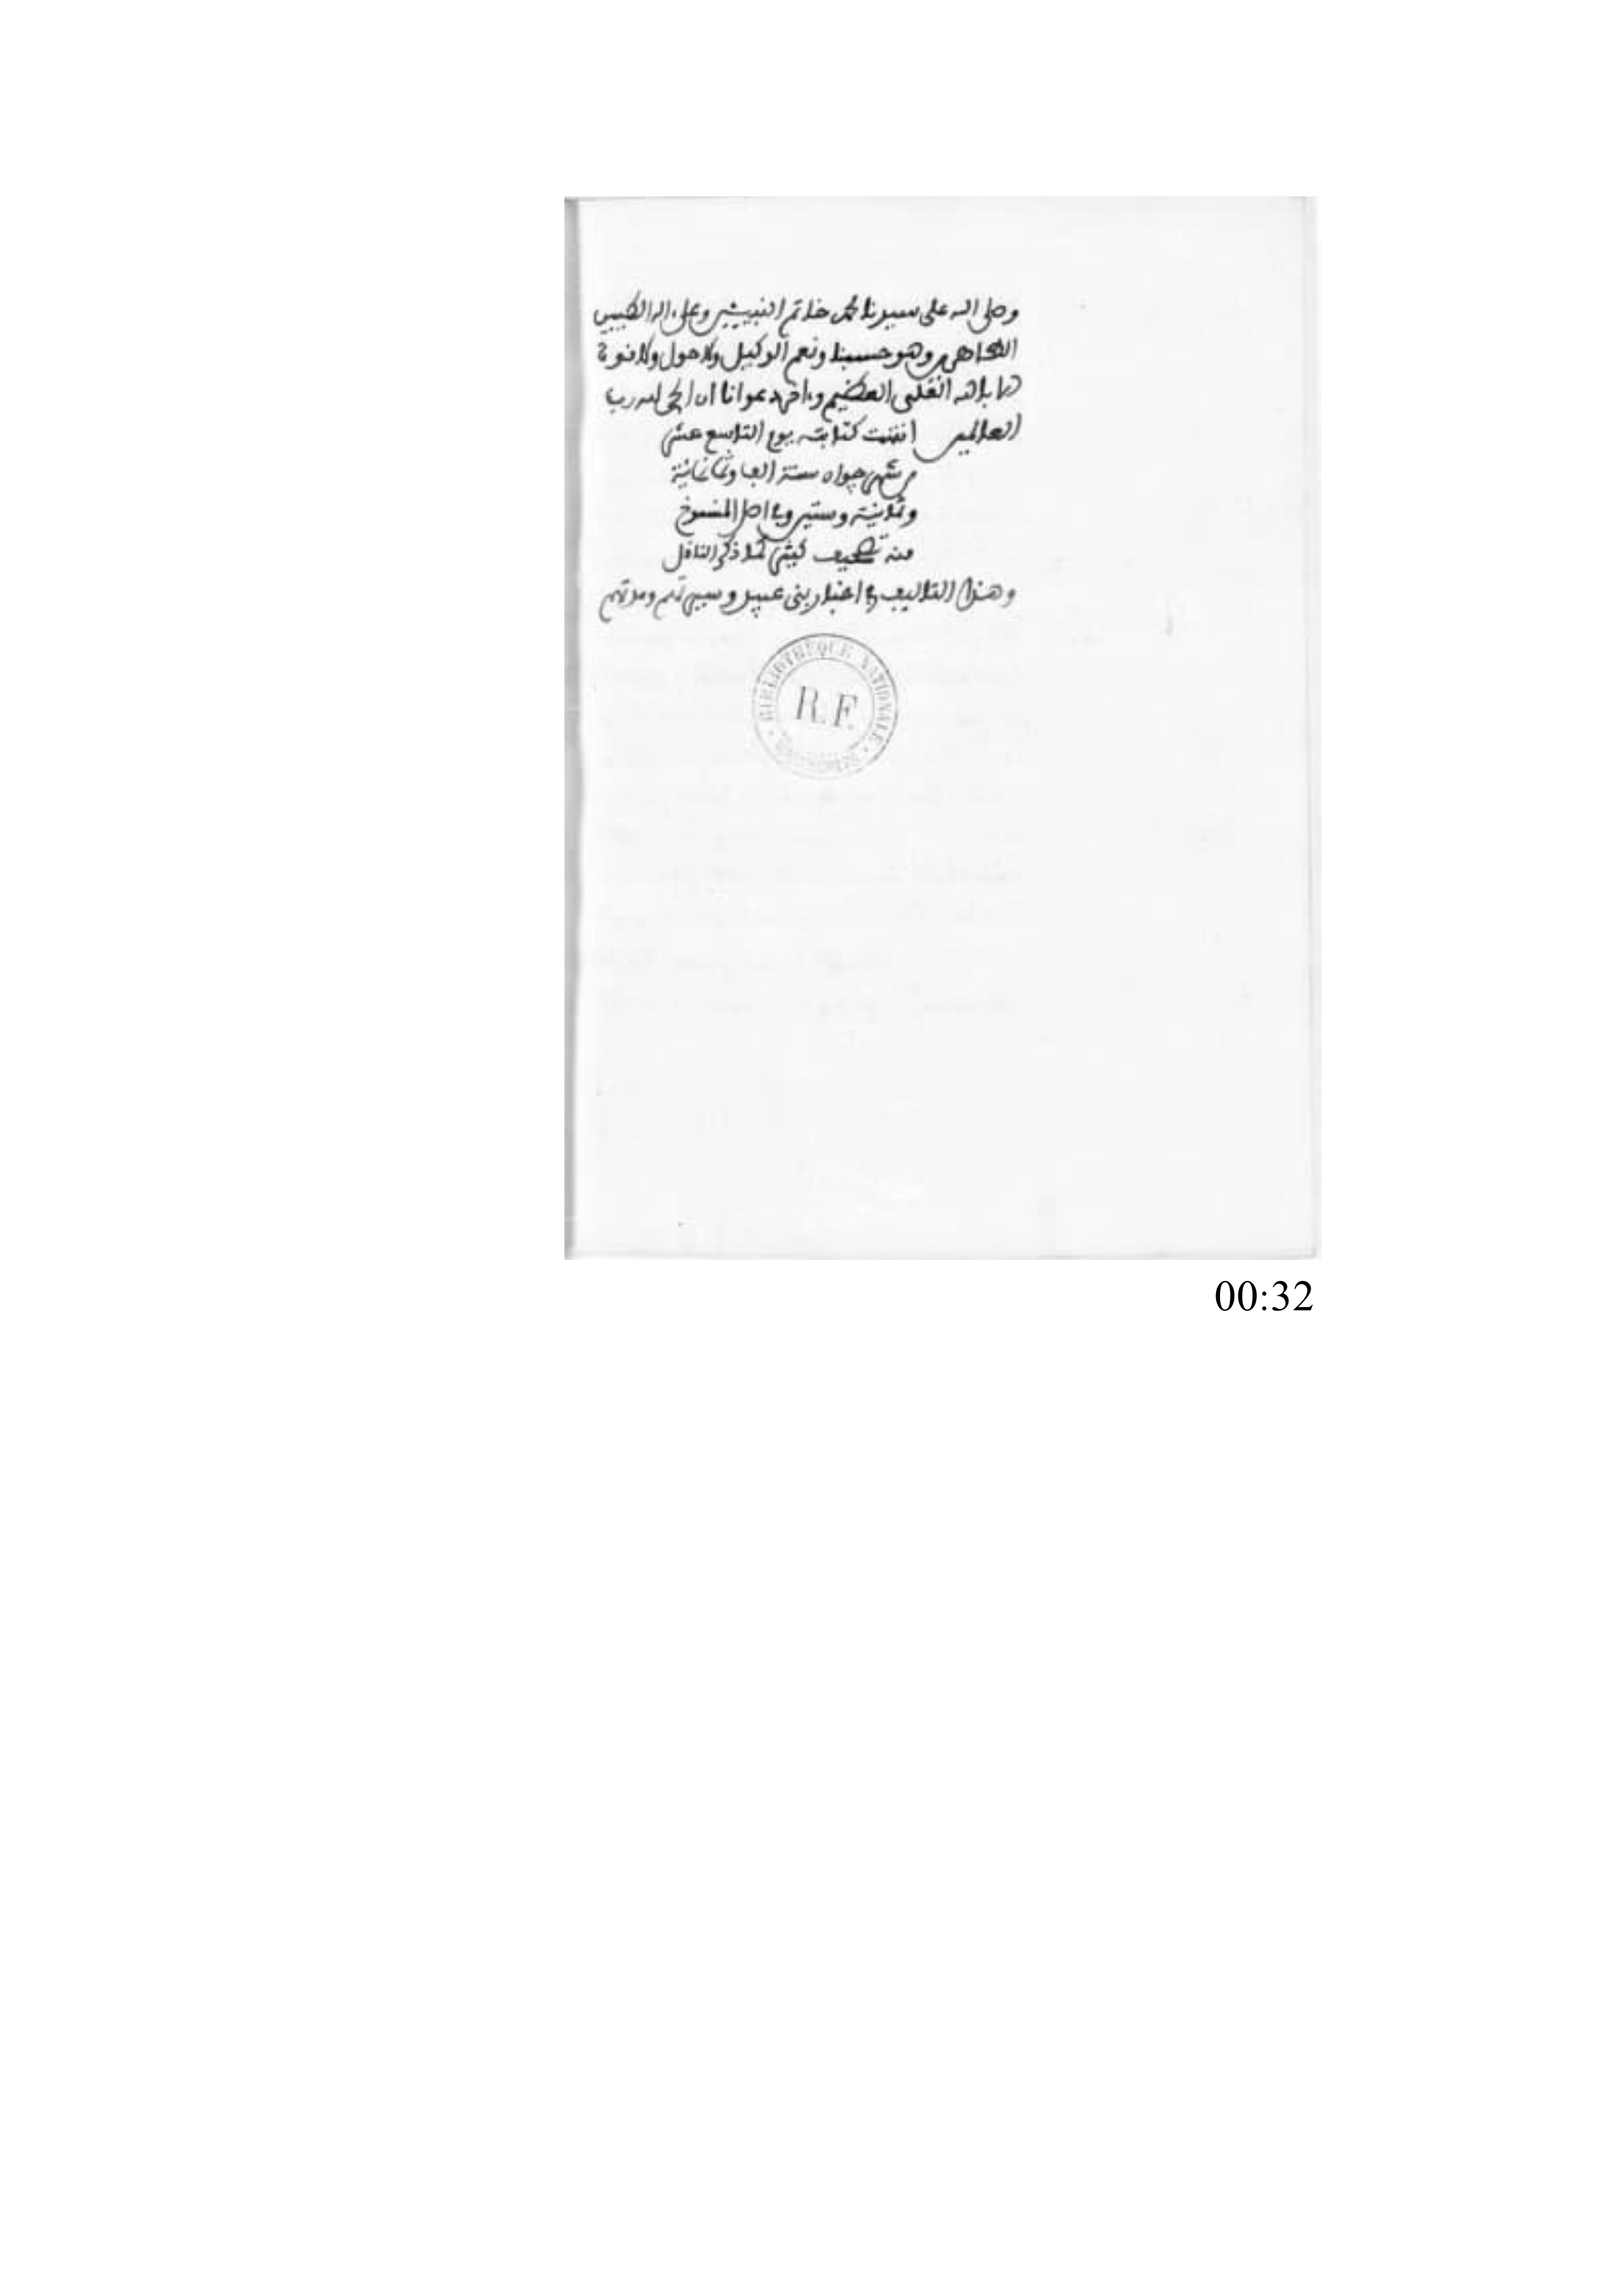 وصلى الله على سيدنا محمد خاتم النبيئين وعلى اله الطيبين
الطاهرين وهو حسبنا ونعم الوكيل ولا حول ولا قوة
الا بالله العلي العظيم واخر دعوانا ان الحمد لله رب
العالمين انتهت كتابته يوم التاسع عشر
من شهر جوان سنة الف وثمانمائة
وثمانية وستين وفي اصل المنسوخ
منه تصحيف كثير كما ذكر الناقل
وهذا التاليف في اخبار بني عبيد وسيرتهم ومدتهم
BIBLIOTHÈQUE NATIONALE
R.F.
00:32